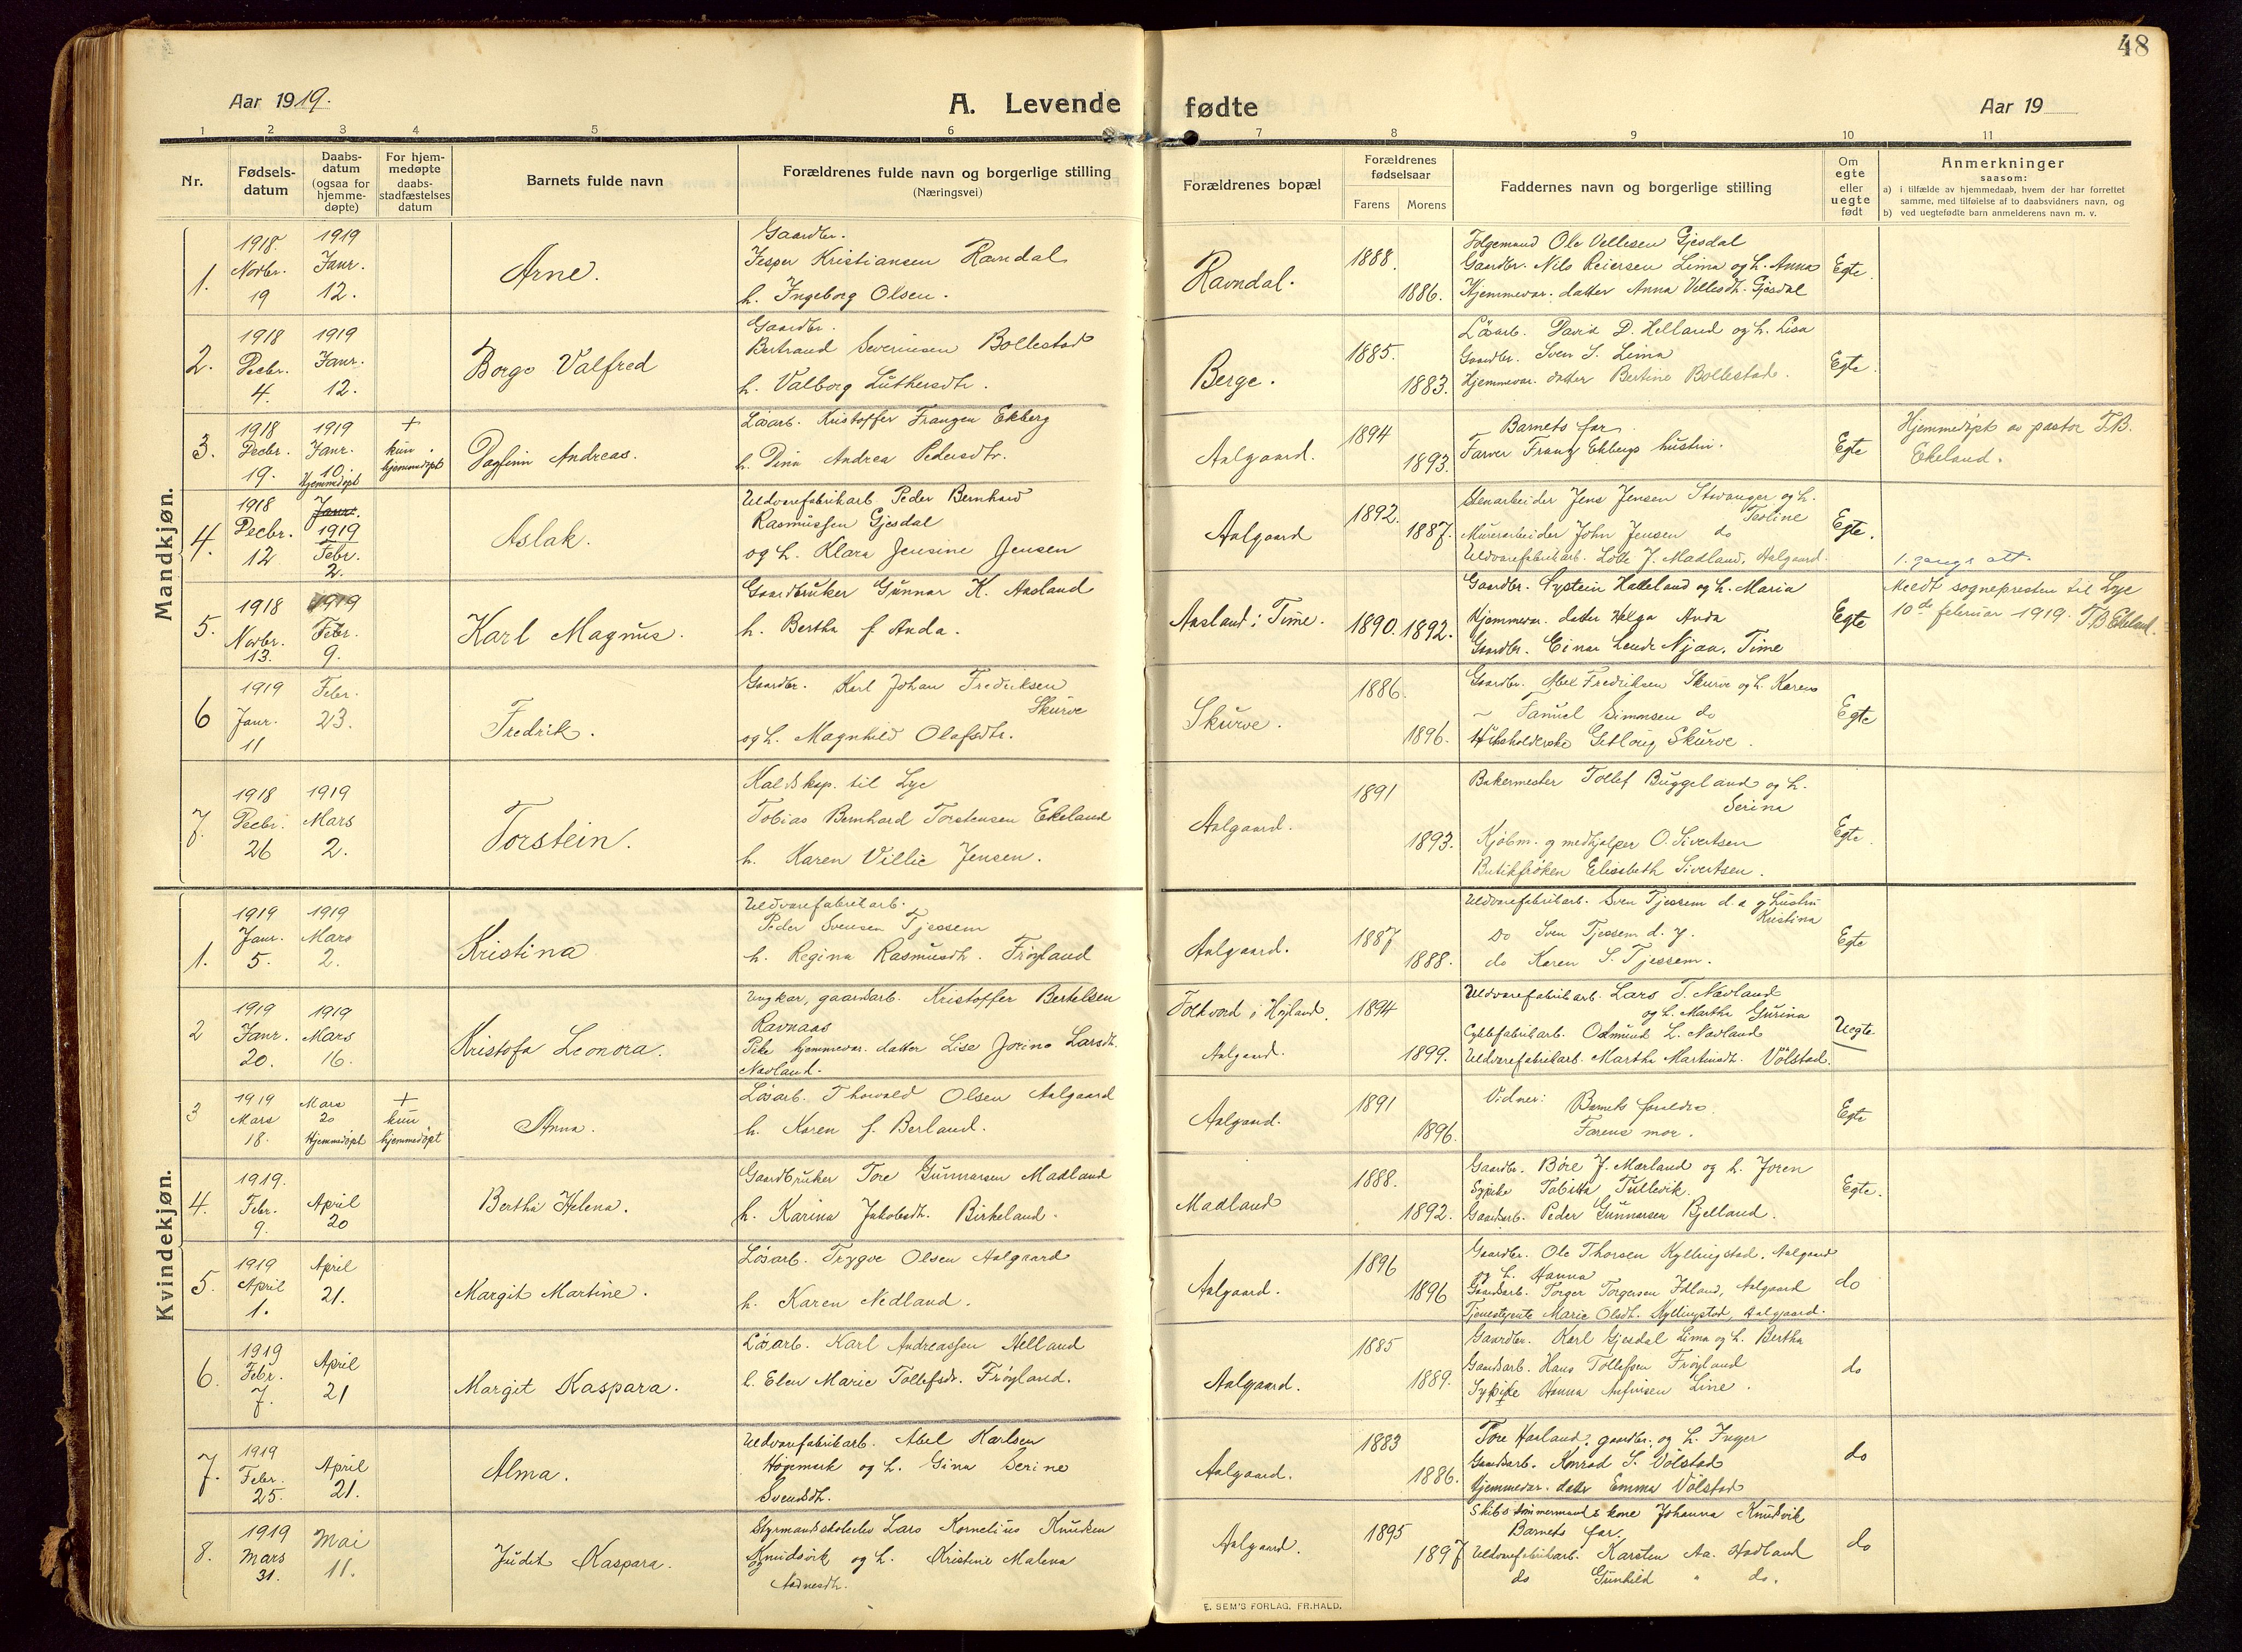 48
Aar 1919.
A. Levende
fødte
Aar 19
1 2 3 4 5 6 7 8 9 10 11
Nr.
Fødsels-
datum
Daabs-
datum
(ogsaa for
hjemme-
døpte)
For hjem-
medøpte
daabs-
stadfæstelses
datum
Barnets fulde navn
Forældrenes fulde navn og borgerlige stilling
(Næringsvei)
Forældrenes bopæl
Forældrenes
fødselsaar
Farens Morens
Faddernes navn og borgerlige stilling
Om
egte
eller
uegte
født
Anmerkninger
saasom:
a) i tilfælde av hjemmedaab, hvem der har forrettet
samme, med tilføielse af to daabsvidners navn, og
b) ved uegtefødte barn anmelderens navn m. v.
Mandkjøn.
1.
1918.
Novbr.
19
1919
Janr.
12.
Arne.
Gaardbr.
Jesper Kristiansen Ravndal
h. Ingeborg Olsen.
Ravndal.
1888.
1886.
Følgemand Ole Vellesen Gjesdal
Gaardbr. Nils Reiersen Lima og h. Anna
Hjemmevær. datter Anna Vellesdt. Gjesdal
Egte.
2.
1918
Decbr.
4.
1919
Janr.
12.
Borge Valfred
Gaardbr.
Bertrand Severinsen Bollestad
h. Valborg Luthersdtr.
Berge.
1885.
1883.
Løsarb. David D. Helland og h. Lisa
Gaardbr. Sven S. Lima
Hjemmevær. datter Bertine Bollestad.
Egte.
3.
1918
Decbr.
19.
1919
Janr.
10.
Hjemmedøpt
+
kun
hjemmedøpt
Dagfinn Andreas.
Løsarb. Kristoffer Frangen Ekberg
h. Dina Andrea Pedersdtr.
Aalgaard.
1894
1893.
Barnets far
Farver Frantz Ekbergs hustru.
Egte
Hjemmedøpt av pastor T.B.
Ekeland.
4.
1918
Decbr.
12
Janr.
1919
Febr.
2.
Aslak.
Uldvarefabrikarb. Peder Bernhard
Rasmussen Gjesdal
og h. Klara Jensine Jensen
Aalgaard
1892.
1887.
Stenarbeider Jens Jensen Stavanger og h.
Teoline
Murerarbeider John Jensen do
Uldvarefabrikarb. Lotte J. Madland, Aalgaard.
Egte.
1. gangs att.
5.
1918
Novbr.
13.
1919
Febr.
9.
Karl Magnus.
Gaardbruker Gunnar K. Aasland
h. Bertha f. Anda.
Aasland i Time.
1890. 1892.
Gaardbr. Eystein Hatteland og h. Maria
Hjemmevær. datter Helga Anda
Gaardbr. Einar Lende Njaa, Time
Egte
Meldt sognepresten til Lye
10de februar 1919. T.B Ekeland.
6
1919
Janr.
11
Febr.
23.
Fredrik.
Gaardbr. Karl Johan Fredriksen
Skurve
og h. Magnhild Olafsdtr.
Skurve.
1886.
1896.
Gaardbr. Abel Fredriksen Skurve og h. Karen
~ Samuel Simonsen do
Husholderske Skurve.
Egte
7.
1918
Decbr.
26
1919
Mars
2.
Torstein.
Kaldskap. til Lye
Tobias Bernhard Torstensen Ekeland
h. Karen Villie Jensen.
Aalgaard.
1891
1893.
Bakermester Tollef Buggeland og h.
Serina
Kjøbm. og medhjælper O. Sivertsen
Butikfrøken Elisabeth Sivertsen.
Egte.
Kvindekjøn.
1.
1919
Janr.
5.
1919
Mars
2.
Kristina
Uldvarefabrikarb.
Peder Svensen Tjessem
h. Regina Rasmusdt. Frøyland
Aalgaard.
1887
1888.
Uldvarefabrikarb. Sven Tjessem d. e. og hustru
Kristina
Do Sven Tjessem d. y.
do Karen S. Tjessem.
Egte
2
1919
Janr.
20.
1919
Mars
16.
Kristofa Leonora.
Ungkar, gaardsarb. Kristoffer Bertelsen
Ravnaas
Pike hjemmevær. datter Lise Jorine Larsdt.
Nævland.
Folkvord i Høyland.
Aalgaard.
1894
1899.
Uldvarefabrikarb. Lars T. Nævland
og h. Martha Gurina
Cyklefabrikarb. Odmund L. Nævland
Uldvarefabrikarb. Martha Martinsdt. Völstad.
Uegte
3
1919
Mars
18.
Mars
20
Hjemmedøpt
+
kun
hjemmedøpt
Anna.
Løsarb. Thorvald Olsen Aalgaard
h. Karen f. Berland.
Aalgaard.
1891
1896.
Vidner: Barnets forældre.
Farens mor.
Egte
4.
1919.
Febr.
9.
April
20
Bertha Helena.
Gaardbruker Tore Gunnarsen Madland
h. Karina Jakobsdt. Birkeland.
Madland
1888.
1892.
Gaardbr. Böre J. Mærland og h. Joren
Sypike Tabitta Tullevik.
Gaardsarb. Peder Gunnarsen Bjelland.
Egte.
5.
1919
April
1.
April
21.
Margit Martine.
Løsarb. Trygve Olsen Aalgaard
h. Karen Nedland.
Aalgaard.
1896
1896
Gaardbr. Ole Thorsen Kyllingstad, Aalgaard
og h. Hanna
Gaardsarb. Torger Torgersen Idland, Aalgaard
Tjenestejente Marie Olsdt. Kyllingstad, Aalgaard.
do
6.
1919
Febr.
7.
April
21
Margit Kaspara.
Løsarb. Karl Andreassen Helland
h. Elen Marie Tollefsdt. Frøyland.
Aalgaard.
1885
1889.
Gaardbr. Karl Gjesdal Lima og h. Bertha
Gaardsarb. Hans Tollefsen Frøyland
Sypike Hanna Line.
do
7.
1919
Febr.
25.
April
21.
Alma.
Uldvarefabrikarb. Abel Karlsen
Høgemark og h. Gina Serine
Svendsdt.
Aalgaard.
1883
1886.
Tore Harland, gaardbr. og h. Inger
Gaardsarb. Konrad S. Völstad
Hjemmevær. datter Emma Völstad
do
8.
1919
Mars
31.
Mai
11.
Judit Kaspara.
Styrmandsskoleelev Lars Kornelius Knudsen
Knudsvik og h. Kristine Malena
Aadnesdt.
Aalgaard.
1895
1897
Skibstømmermands kone Johanna Knudsvik
Barnets far.
Uldvarefabrikarb. Karsten Aa. Hadland
do Gunhild " do.
do
E. SEM'S FORLAG, FR.HALD.